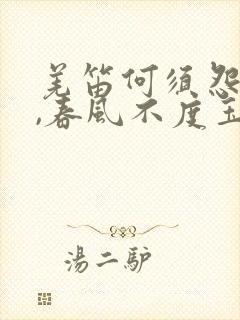 羌笛何须怨
,春风不度玉
湯二驴